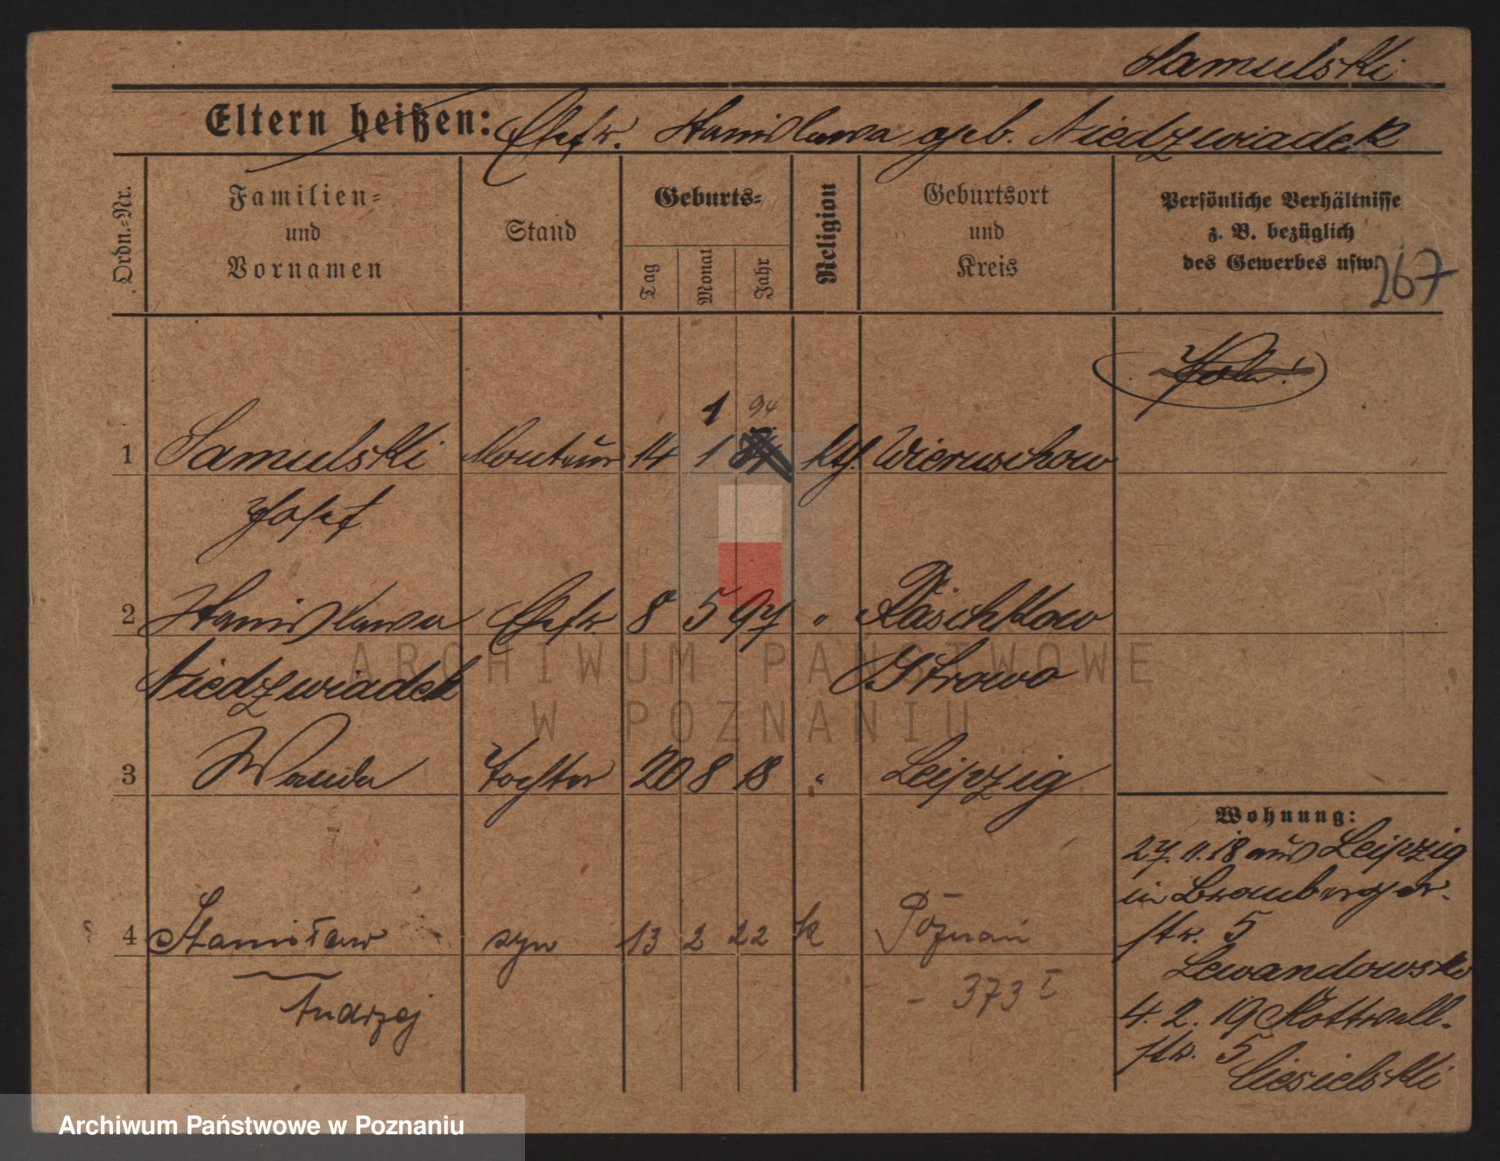 Samulski
Eltern heißen: Ehefr. Stanislawa geb. Niedzwiadek
Ordn.-Nr.
Familien-
und
Vornamen
Stand
Geburts-
Tag
Monat
Jahr
Religion
Geburtsort
und
Kreis
Persönliche Verhältnisse
z. B. bezüglich
des Gewerbes usw.
267
1 94
1 Samulski Monteur 14 1 kth. Wieruschow
Josef
2 Stanislawa Ehefr. 8 5 97 " Raschkow
Niedzwiadek Ostrowo
3 Wanda Tochter 20 8 18 " Leipzig
Wohnung:
27. 11. 18 aus Leipzig
in Brombergер-
str. 5
Lewandowski
4. 2. 19 Kottwell-
str. 5
Ciesielski
4 Stanisław syn 13 2 22 k Poznań
Andrzej
- 373 I
ARCHIWUM PAŃSTWOWE
W POZNANIU
Archiwum Państwowe w Poznaniu